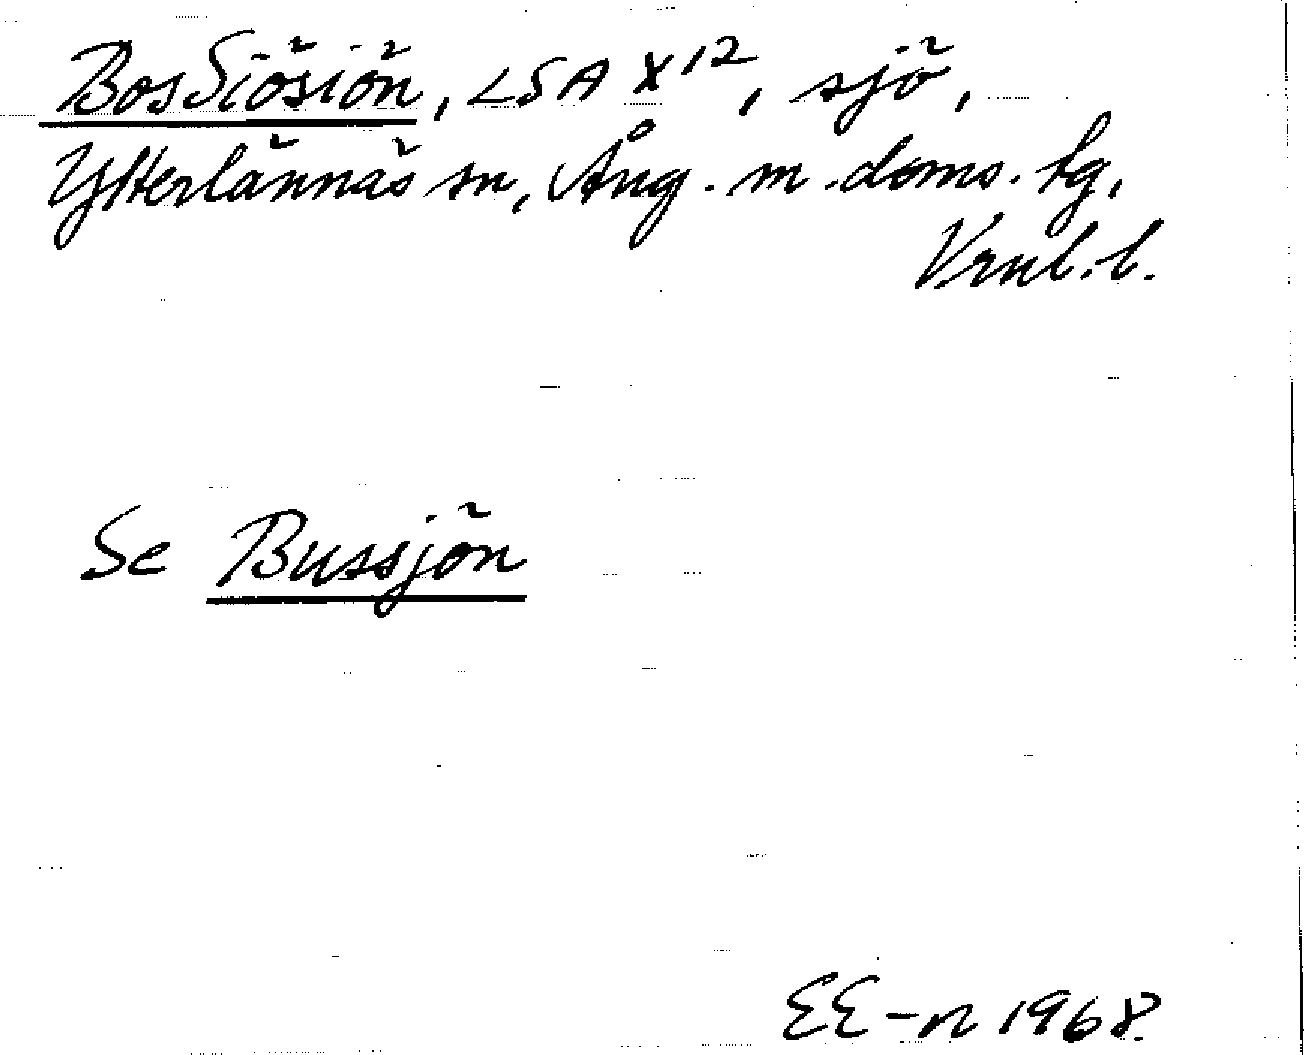 BosSiösiön, LSA X12, sjö,
Ytterlännäs sn, Ång. m. doms. tg,
Vrnl. l.
Se Bussjön
EE-n 1968.